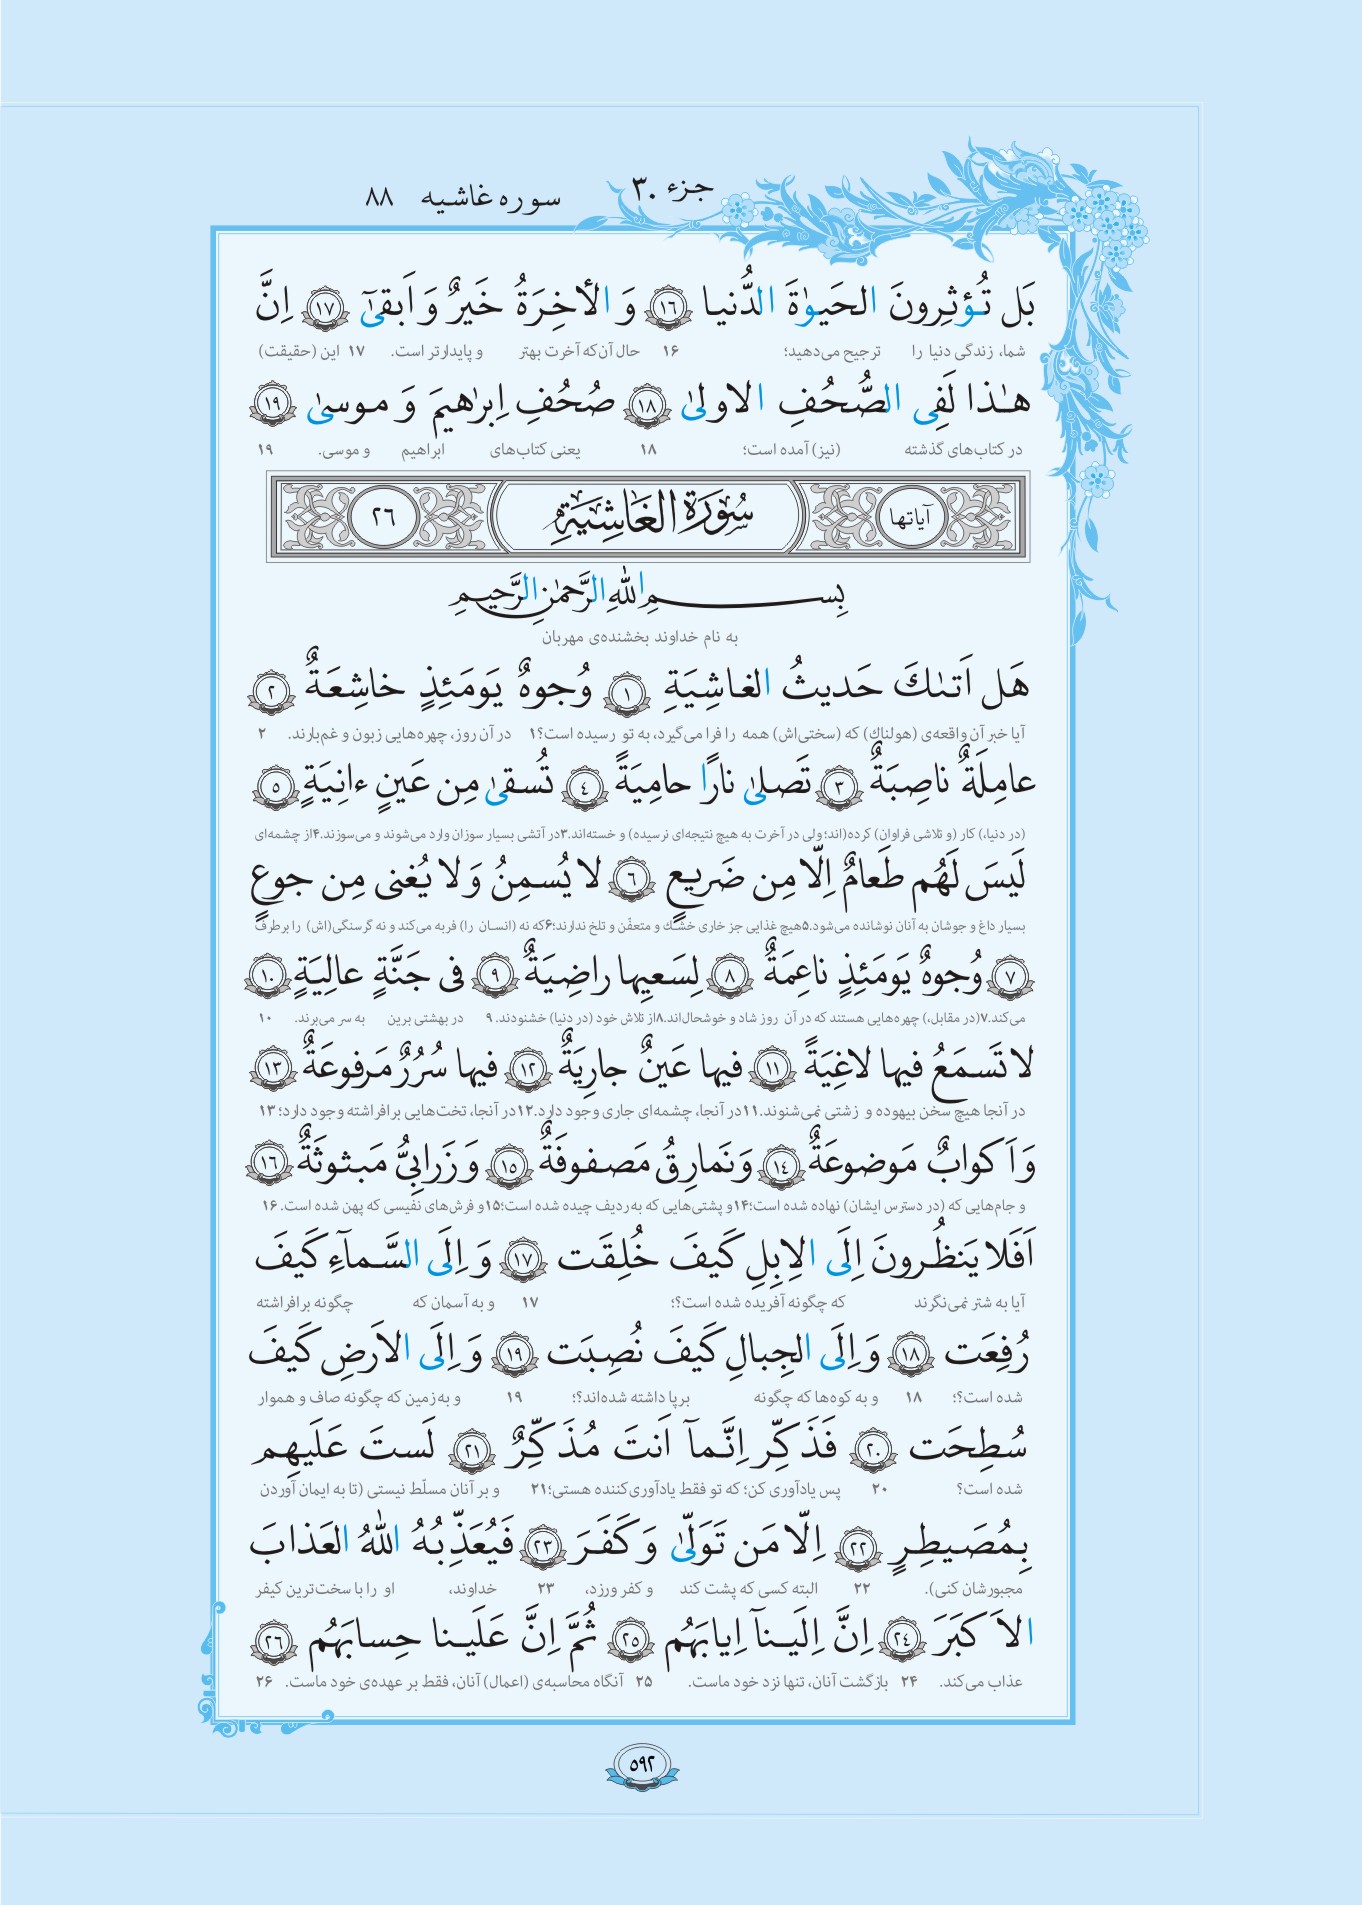 جزء ۳۰ سوره غاشیه ۸۸
بَل تُؤثِرونَ الحَیوٰةَ الدُّنیا ﴿۱۶﴾ وَ الأخِرَةُ خَیرٌ وَ اَبقیٰٓ ﴿۱۷﴾ اِنَّ
شما، زندگی دنیا را ترجیح می‌دهید؛ ۱۶ حال آن‌که آخرت بهتر و پایدارتر است. ۱۷ این (حقیقت)
هٰذا لَفِی الصُّحُفِ الاولیٰ ﴿۱۸﴾ صُحُفِ اِبرٰهیمَ وَ موسیٰ ﴿۱۹﴾
در کتاب‌های گذشته (نیز) آمده است؛ ۱۸ یعنی کتاب‌های ابراهیم و موسی. ۱۹
آیاتها سُورَةُ الغَاشِيَةِ ٢٦
بِسمِ اللّٰهِ الرَّحمٰنِ الرَّحیمِ
به نام خداوند بخشنده‌ی مهربان
هَل اَتىٰكَ حَدیثُ الغاشِیَةِ ﴿۱﴾ وُجوهٌ یَومَئِذٍ خاشِعَةٌ ﴿۲﴾
آیا خبر آن واقعه‌ی (هولناك) که (سختی‌اش) همه را فرا می‌گیرد، به تو رسیده است؟۱ در آن روز، چهره‌هایی زبون و غم‌بارند. ۲
عامِلَةٌ ناصِبَةٌ ﴿۳﴾ تَصلیٰ نارًا حامِیَةً ﴿۴﴾ تُسقیٰ مِن عَینٍ ءانِیَةٍ ﴿۵﴾
(در دنیا،) کار (و تلاشی فراوان) کرده(اند؛ ولی در آخرت به هیچ نتیجه‌ای نرسیده) و خسته‌اند.۳در آتشی بسیار سوزان وارد می‌شوند و می‌سوزند.۴از چشمه‌ای
لَیسَ لَهُم طَعامٌ اِلّا مِن ضَریعٍ ﴿۶﴾ لا یُسمِنُ وَ لا یُغنی مِن جوعٍ
بسیار داغ و جوشان به آنان نوشانده می‌شود.۵هیچ غذایی جز خاری خشك و متعفّن و تلخ ندارند؛۶که نه (انسان را) فربه می‌کند و نه گرسنگی(اش) را برطرف
﴿۷﴾ وُجوهٌ یَومَئِذٍ ناعِمَةٌ ﴿۸﴾ لِسَعیِها راضِیَةٌ ﴿۹﴾ فی جَنَّةٍ عالِیَةٍ ﴿۱۰﴾
می‌کند.۷(در مقابل،) چهره‌هایی هستند که در آن روز شاد و خوشحال‌اند.۸از تلاش خود (در دنیا) خشنودند. ۹ در بهشتی برین به سر می‌برند. ۱۰
لا تَسمَعُ فیها لاغِیَةً ﴿۱۱﴾ فیها عَینٌ جارِیَةٌ ﴿۱۲﴾ فیها سُرُرٌ مَرفوعَةٌ ﴿۱۳﴾
در آنجا هیچ سخن بیهوده و زشتی نمی‌شنوند.۱۱در آنجا، چشمه‌ای جاری وجود دارد.۱۲در آنجا، تخت‌هایی برافراشته وجود دارد؛ ۱۳
وَ اَکوابٌ مَوضوعَةٌ ﴿۱۴﴾ وَ نَمارِقُ مَصفوفَةٌ ﴿۱۵﴾ وَ زَرابِیُّ مَبثوثَةٌ ﴿۱۶﴾
و جام‌هایی که (در دسترس ایشان) نهاده شده است؛۱۴و پشتی‌هایی که به‌ردیف چیده شده است؛۱۵و فرش‌های نفیسی که پهن شده است. ۱۶
اَفَلا یَنظُرونَ اِلَی الاِبِلِ کَیفَ خُلِقَت ﴿۱۷﴾ وَ اِلَی السَّماءِ کَیفَ
آیا به شتر نمی‌نگرند که چگونه آفریده شده است؟؛ ۱۷ و به آسمان که چگونه برافراشته
رُفِعَت ﴿۱۸﴾ وَ اِلَی الجِبالِ کَیفَ نُصِبَت ﴿۱۹﴾ وَ اِلَی الاَرضِ کَیفَ
شده است؟؛ ۱۸ و به کوه‌ها که چگونه برپا داشته شده‌اند؟؛ ۱۹ و به‌زمین که چگونه صاف و هموار
سُطِحَت ﴿۲۰﴾ فَذَکِّر اِنَّمآ اَنتَ مُذَکِّرٌ ﴿۲۱﴾ لَستَ عَلَیهِم
شده است؟ ۲۰ پس یادآوری کن؛ که تو فقط یادآوری‌کننده هستی؛۲۱ و بر آنان مسلّط نیستی (تا به ایمان آوردن
بِمُصَیطِرٍ ﴿۲۲﴾ اِلّا مَن تَوَلّیٰ وَ کَفَرَ ﴿۲۳﴾ فَیُعَذِّبُهُ اللّٰهُ العَذابَ
مجبورشان کنی). ۲۲ البته کسی که پشت کند و کفر ورزد، ۲۳ خداوند، او را با سخت‌ترین کیفر
الاَکبَرَ ﴿۲۴﴾ اِنَّ اِلَینآ اِیابَهُم ﴿۲۵﴾ ثُمَّ اِنَّ عَلَینا حِسابَهُم ﴿۲۶﴾
عذاب می‌کند. ۲۴ بازگشت آنان، تنها نزد خود ماست. ۲۵ آنگاه محاسبه‌ی (اعمال) آنان، فقط بر عهده‌ی خود ماست. ۲۶
۵۹۲